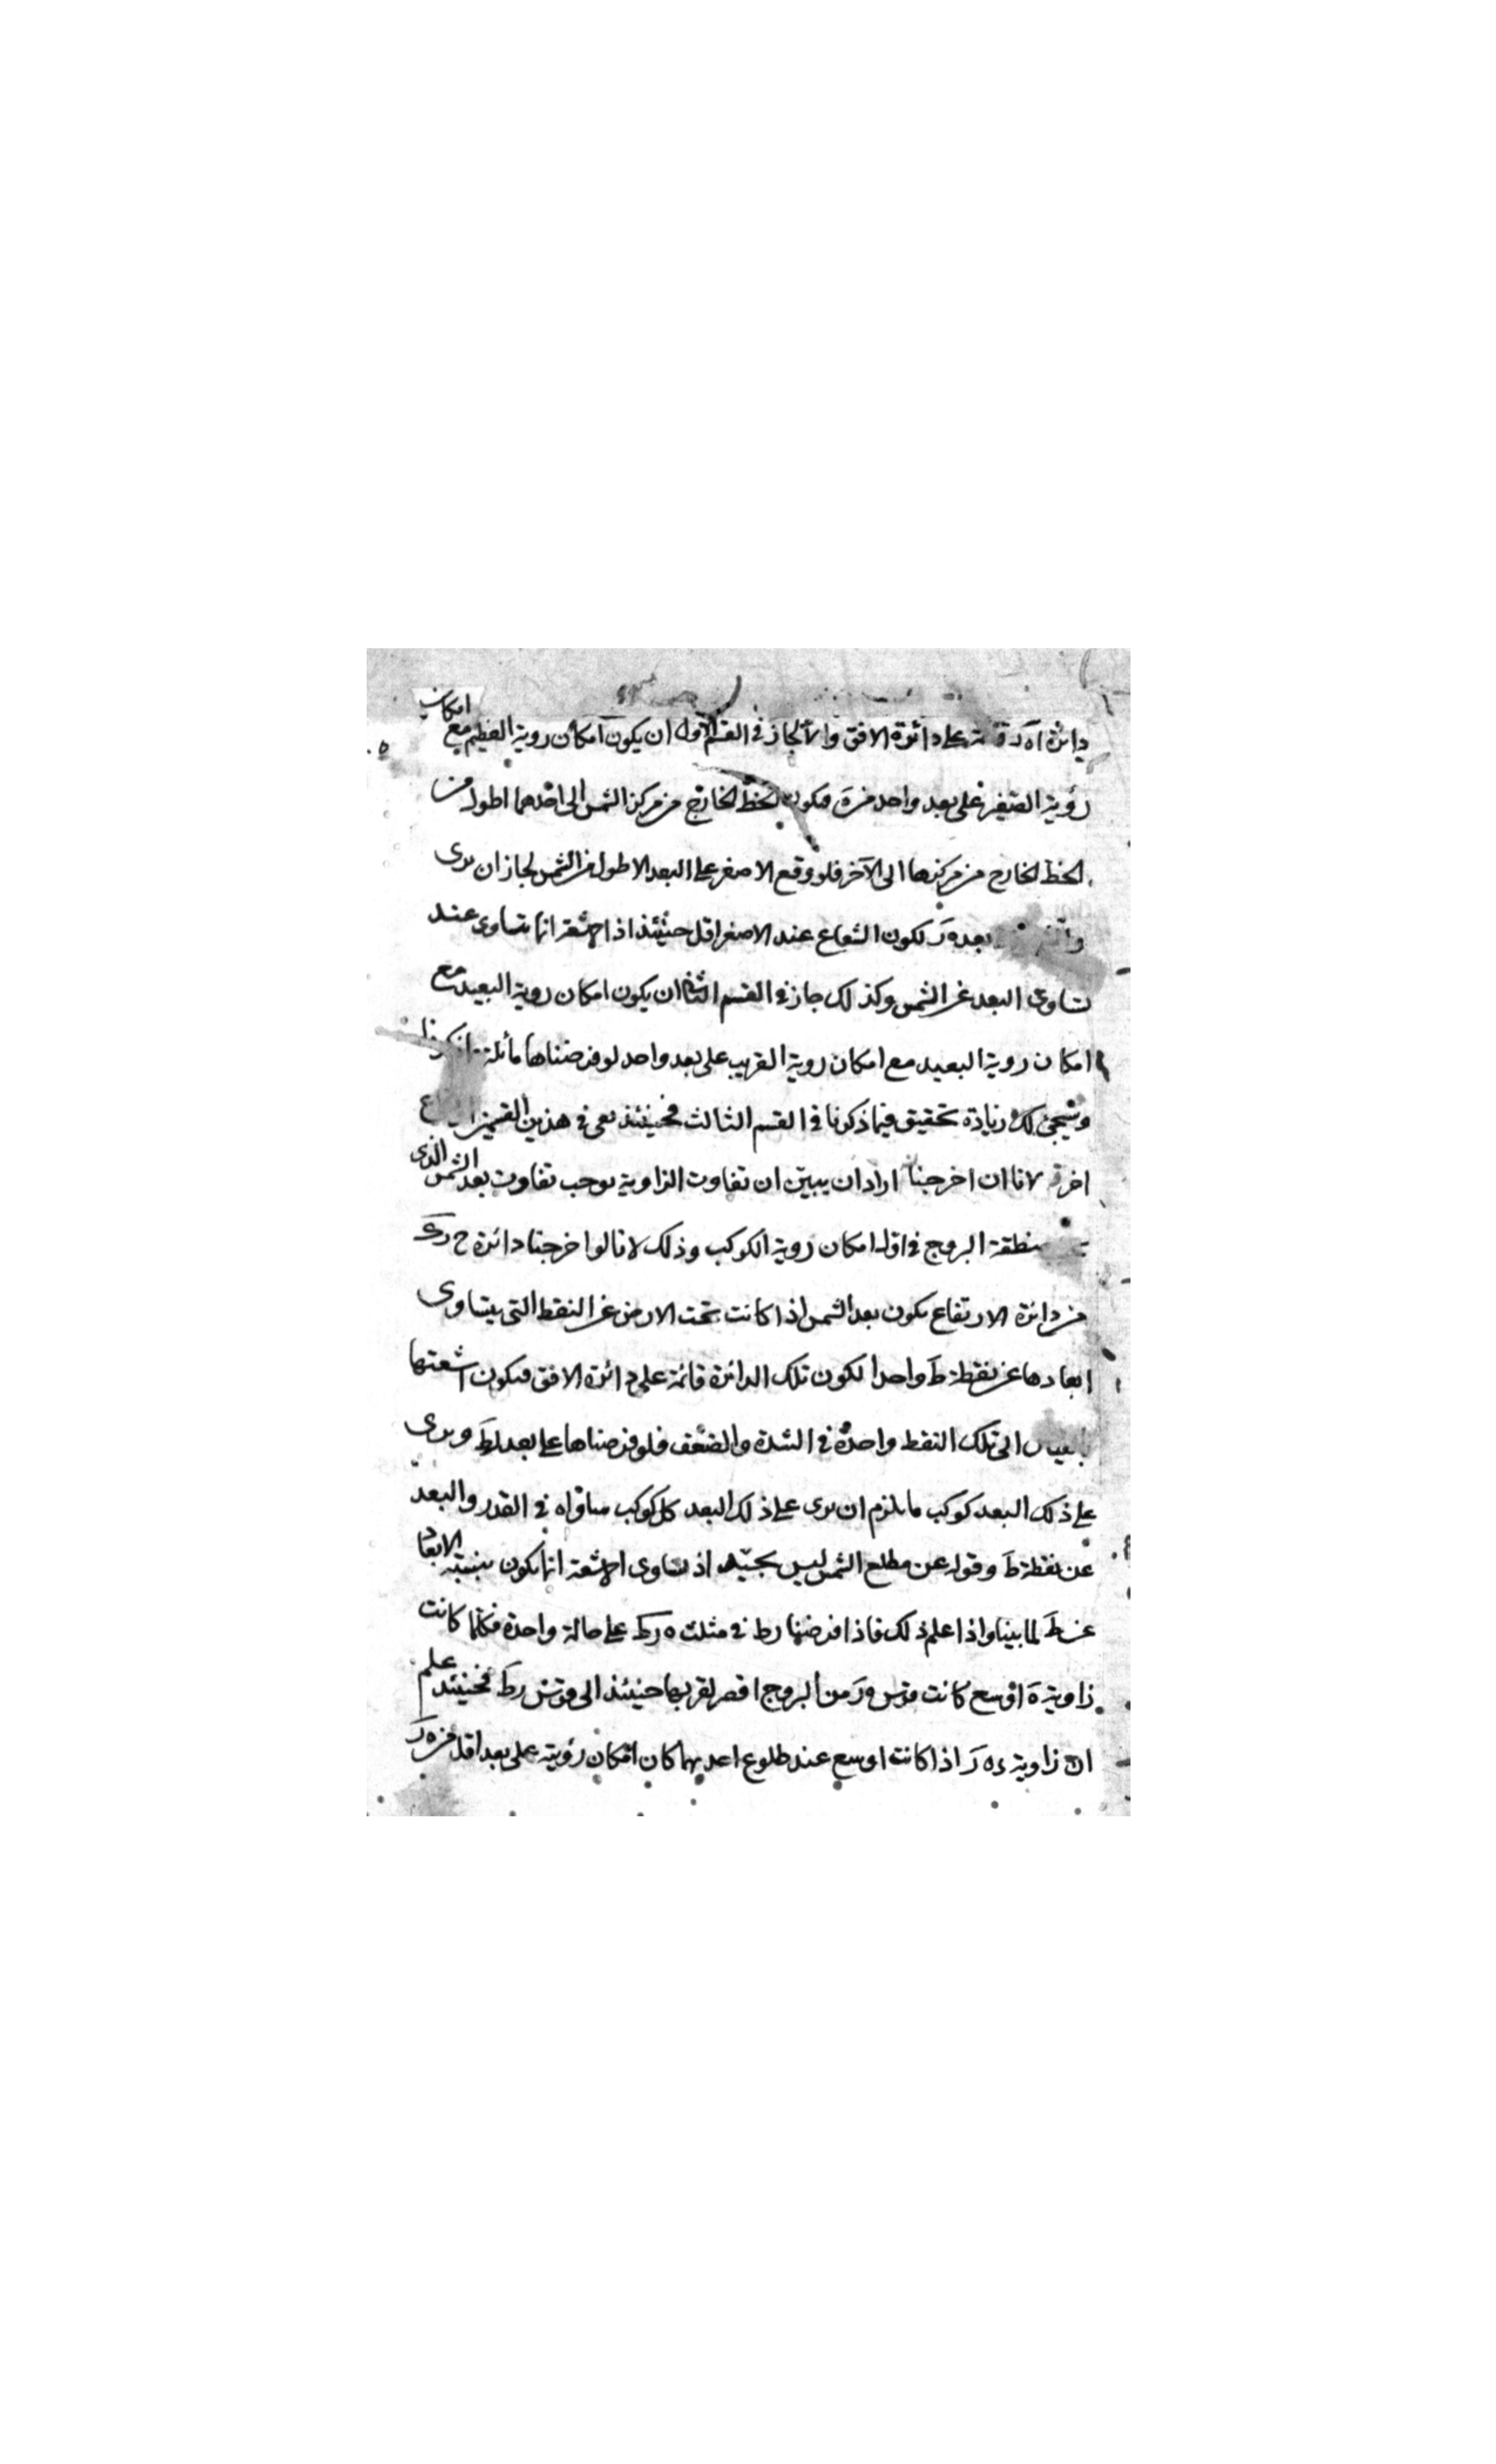 دائرة اه ر قائمة على دائرة الافق والا لجاز في القسم الاول ان يكون امكان روية العظيم مع امكان
رؤية الصغير على بعد واحد من ه فيكون الخط الخارج من مركز الشمس الى احدهما اطول من
الخط الخارج من مركزها الى الآخر فلو وقع الاصغر على البعد الاطول من الشمس لجاز ان يرى
بعد ه ر لكون الشعاع عند الاصغر اقل حينئذ اذ الاشعة انما تتساوى عند
تساوى البعد عن الشمس وكذلك جاز في القسم الثاني ان يكون امكان روية البعيد مع
امكان روية البعيد مع امكان روية القريب على بعد واحد لو فرضناها مائلة
وسيجئ لك زيادة تحقيق فيما ذكرنا في القسم الثالث فحينئذ نعى في هذين القسمين
اخرى لانا ان اخرجنا اراد ان يبين ان تفاوت الزاوية يوجب تفاوت بعد الشمس الذى
منطقة البروج في اول امكان روية الكوكب وذلك لانا لو اخرجنا دائرة
من دائرة الارتفاع يكون بعد الشمس اذا كانت تحت الارض عن النقط التى يتساوى
ابعادها عن نقطة ط واحدا لكون تلك الدائرة قائمة على دائرة الافق فيكون اشعتها
بالقياس الى تلك النقط واحدة في الشدة والضعف فلو فرضناها على بعد رط ويرى
على ذلك البعد كوكب ما يلزم ان يرى على ذلك البعد كل كوكب ساواه في القدر والبعد
عن نقطة ط وقوله عن مطلع الشمس ليس بجيد اذ تساوى الاشعة انما يكون بنسبة الابعاد
عن ط لما بينا واذا علم ذلك فاذا فرضنا رط في مثلث ه رط على حالة واحدة فكلما كانت
زاوية ه اوسع كانت قوس ه ر من البروج اقصر لقربها حينئذ الى قوس رط فحينئذ علم
ان زاوية ء ه ر اذا كانت اوسع عند طلوع احديهما كان امكان رؤيته على بعد اقل من ه ر